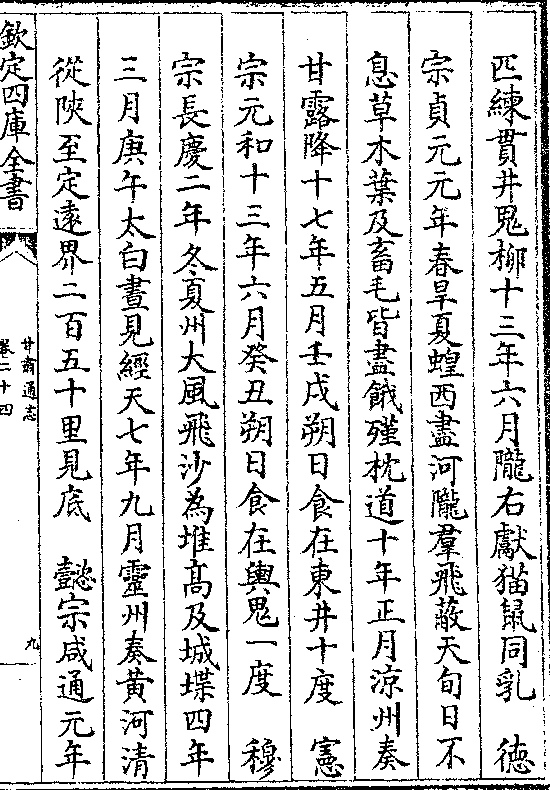 匹練貫井鬼柳十三年六月隴右獻猫鼠同乳　德
宗貞元元年春旱夏蝗西盡河隴羣飛蔽天旬日不
息草木葉及畜毛皆盡餓殣枕道十年正月涼州奏
甘露降十七年五月壬戌朔日食在東井十度　憲
宗元和十三年六月癸丑朔日食在輿鬼一度　穆
宗長慶二年冬夏州大風飛沙為堆高及城堞四年
三月庚午太白晝見經天七年九月靈州奏黃河清
從陜至定遠界二百五十里見底　懿宗咸通元年
欽定四庫全書
甘肅通志
卷二十四
九